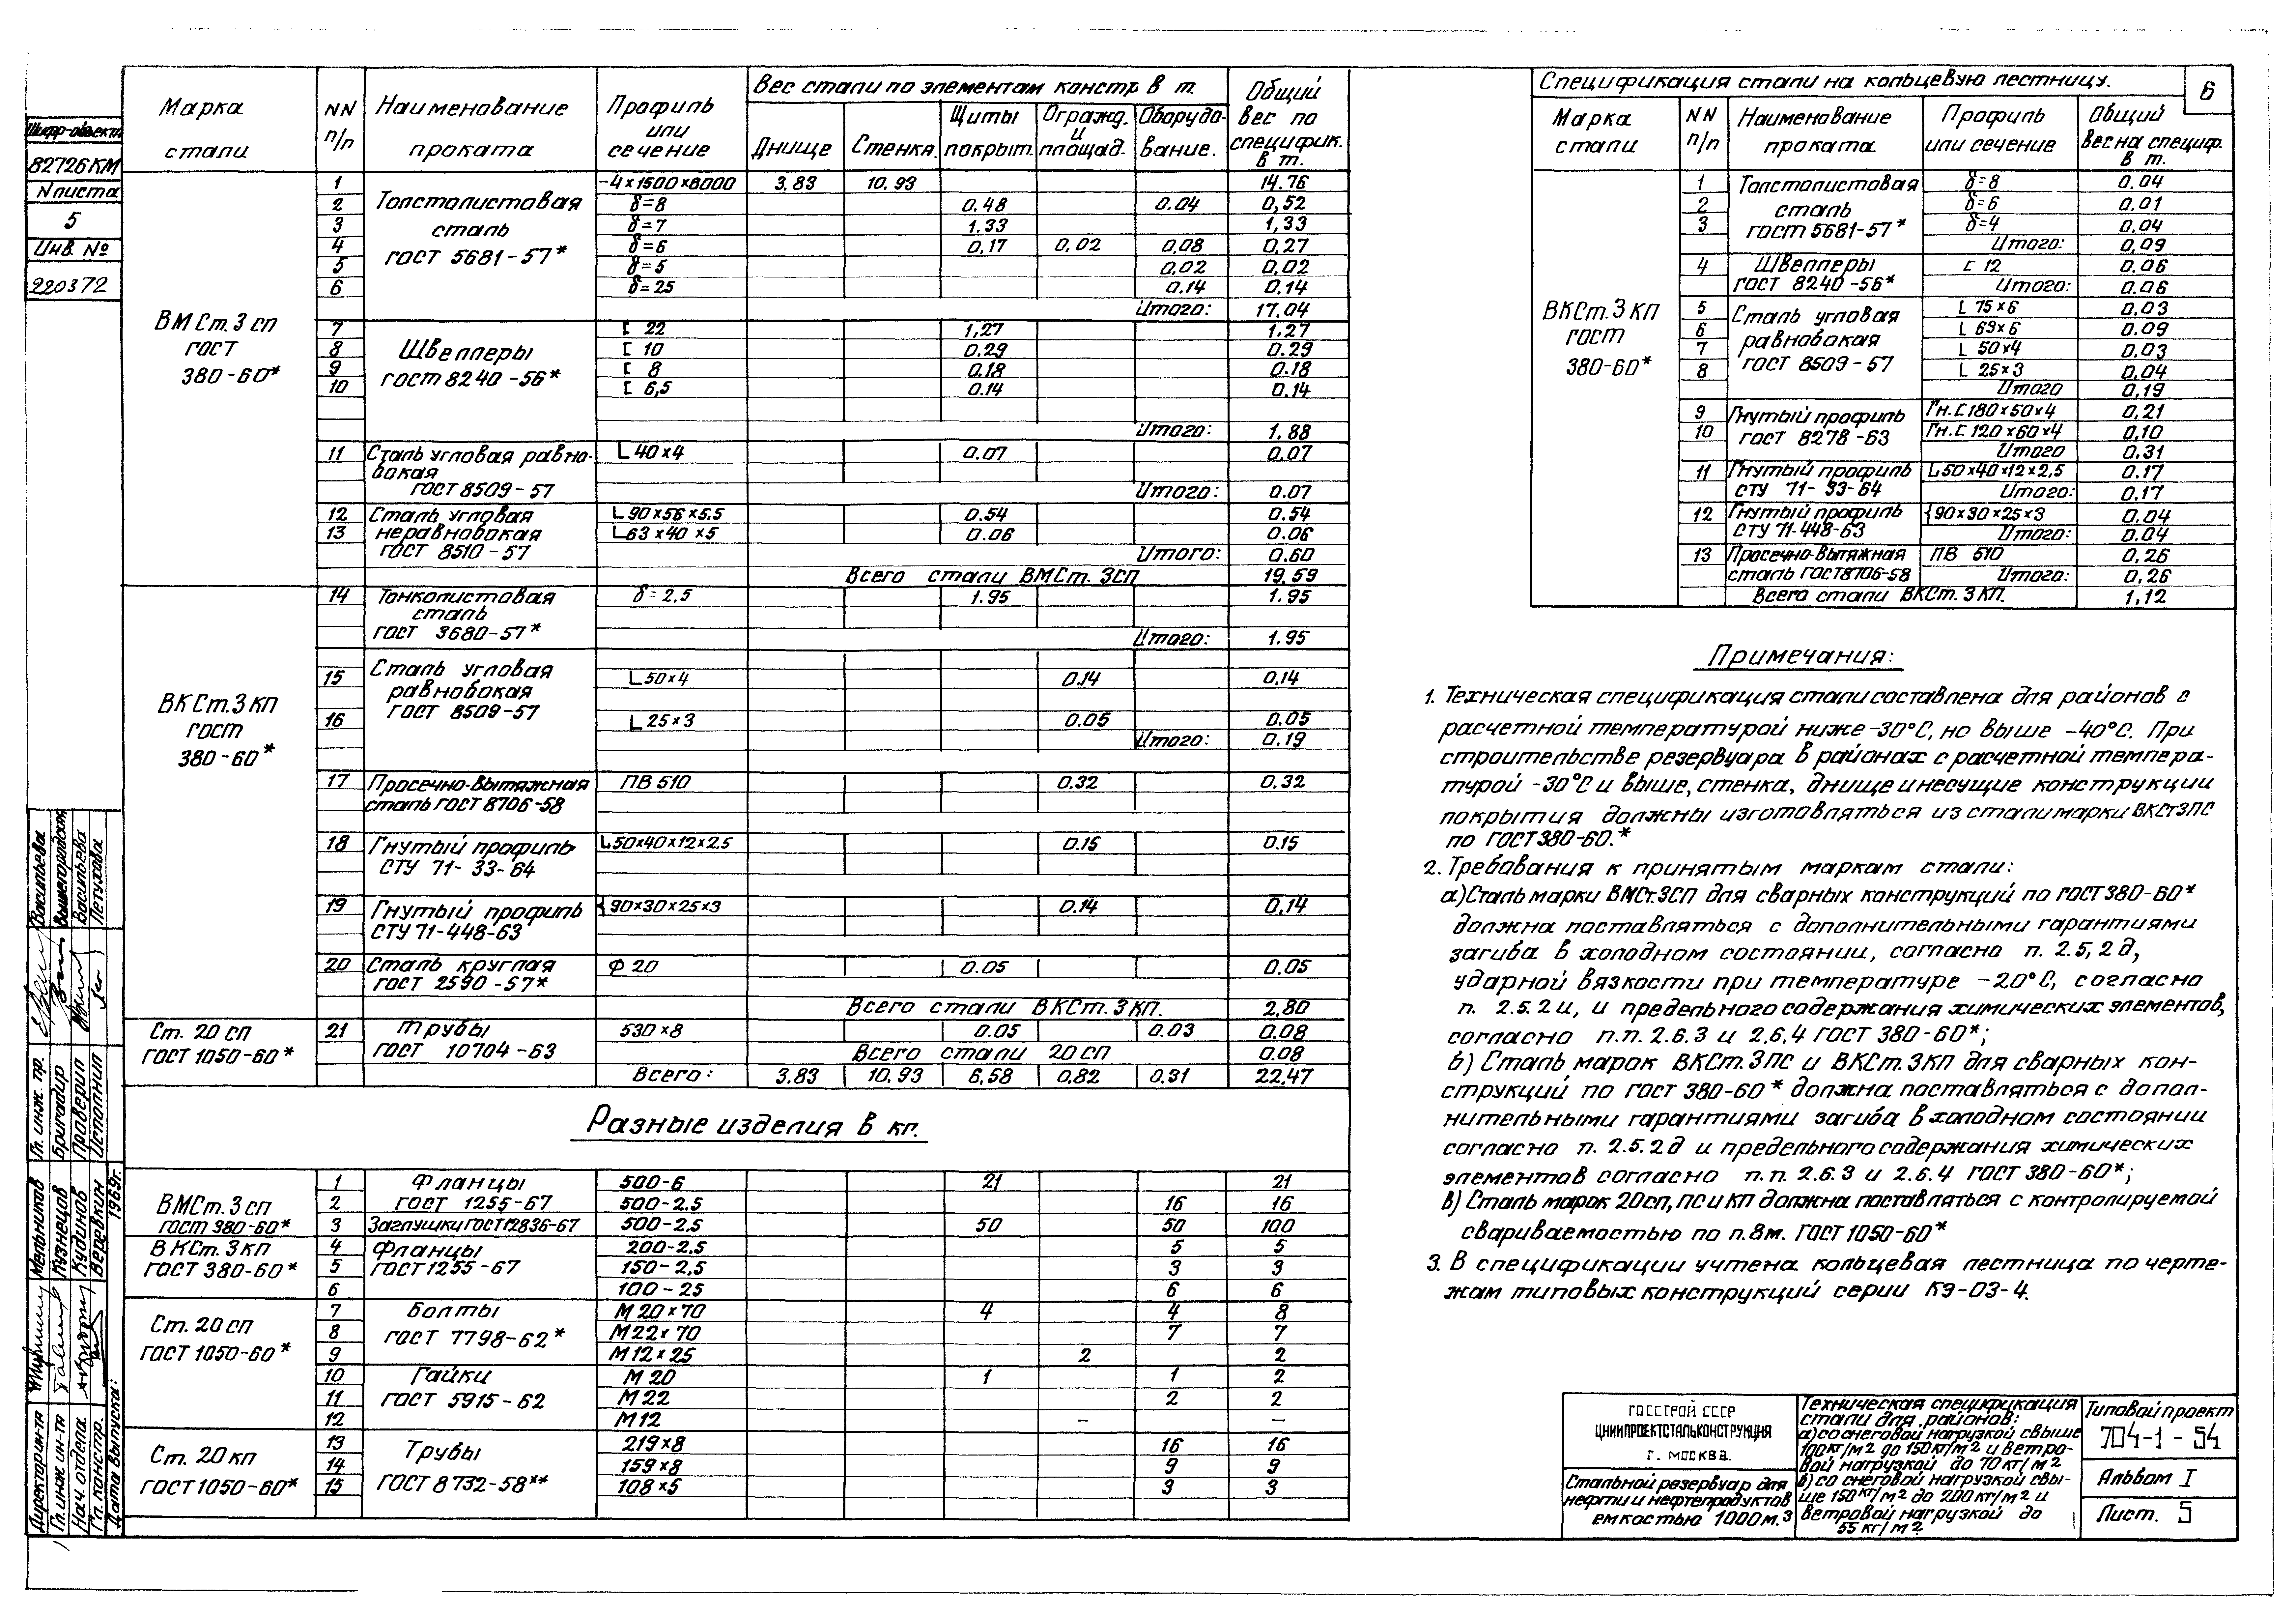 Шифр-объекта
82726КМ
N листа
5
Инв. №
220372
Марка стали
NN п/п
Наименование проката
Профиль или сечение
Вес стали по элементам констр. в т.
Днище
Стенка.
Щиты покрыт.
Огражд. и площад.
Оборудование.
Общий вес по специфик. в т.
ВМСт.3сп ГОСТ 380-60*
Толстолистовая сталь ГОСТ 5681-57*
1 -4×1500×6000 3.83 10.93 14.76
2 δ=8 0.48 0.04 0,52
3 δ=7 1.33 1,33
4 δ=6 0,17 0,02 0,08 0,27
5 δ=5 0,02 0,02
6 δ=25 0.14 0.14
Итого: 17.04
Швеллеры ГОСТ 8240-56*
7 [ 22 1,27 1.27
8 [ 10 0.29 0.29
9 [ 8 0.18 0.18
10 [ 6,5 0.14 0.14
Итого: 1.88
11 Сталь угловая равнобокая ГОСТ 8509-57 L 40×4 0.07 0.07
Итого: 0.07
Сталь угловая неравнобокая ГОСТ 8510-57
12 L 90×56×5.5 0.54 0.54
13 L 63×40×5 0.06 0.06
Итого: 0.60
Всего стали ВМСт.3СП 19,59
ВКСт.3кп ГОСТ 380-60*
14 Тонколистовая сталь ГОСТ 3680-57* δ=2,5 1.95 1.95
Итого: 1.95
Сталь угловая равнобокая ГОСТ 8509-57
15 L 50×4 0.14 0,14
16 L 25×3 0.05 0.05
Итого: 0,19
17 Просечно-вытяжная сталь ГОСТ 8706-58 ПВ 510 0.32 0.32
18 Гнутый профиль СТУ 71-33-64 L50×40×12×2.5 0.15 0.15
19 Гнутый профиль СТУ 71-448-63 {90×30×25×3 0.14 0,14
20 Сталь круглая ГОСТ 2590-57* Ф 20 0.05 0.05
Всего стали ВКСт.3кп. 2,80
Ст. 20 сп ГОСТ 1050-60*
21 Трубы ГОСТ 10704-63 530×8 0.05 0.03 0.08
Всего стали 20 сп 0.08
Всего: 3.83 10,93 6,58 0,82 0.31 22,47
Разные изделия в кг.
ВМСт.3сп ГОСТ 380-60*
1 Фланцы 500-6 21 21
2 ГОСТ 1255-67 500-2.5 16 16
3 Заглушки ГОСТ 12836-67 500-2.5 50 50 100
ВКСт.3кп ГОСТ 380-60*
4 Фланцы 200-2.5 5 5
5 ГОСТ 1255-67 150-2,5 3 3
6 100-25 6 6
Ст. 20 сп ГОСТ 1050-60*
Болты ГОСТ 7798-62*
7 М20×70 4 4 8
8 М22×70 7 7
9 М12×25 2 2
Гайки ГОСТ 5915-62
10 М20 1 1 2
11 М22 2 2
12 М12 - -
Ст. 20 кп ГОСТ 1050-60*
Трубы ГОСТ 8732-58**
13 219×8 16 16
14 159×8 9 9
15 108×5 3 3
Спецификация стали на кольцевую лестницу.
6
Марка стали
NN п/п
Наименование проката
Профиль или сечение
Общий вес на специф. в т.
ВКСт.3кп ГОСТ 380-60*
Толстолистовая сталь ГОСТ 5681-57*
1 δ=8 0.04
2 δ=6 0.01
3 δ=4 0.04
Итого: 0,09
4 Швеллеры ГОСТ 8240-56* [ 12 0.06
Итого: 0.06
Сталь угловая равнобокая ГОСТ 8509-57
5 L 75×6 0,03
6 L 63×6 0.09
7 L 50×4 0.03
8 L 25×3 0,04
Итого 0,19
Гнутый профиль ГОСТ 8278-63
9 Гн.[180×50×4 0,21
10 Гн.[120×60×4 0,10
Итого 0.31
11 Гнутый профиль СТУ 71-33-64 L50×40×12×2,5 0.17
Итого: 0,17
12 Гнутый профиль СТУ 71-448-63 {90×30×25×3 0.04
Итого: 0.04
13 Просечно-вытяжная сталь ГОСТ 8706-58 ПВ 510 0,26
Итого: 0,26
Всего стали ВКСт.3КП. 1,12
Примечания:
1. Техническая спецификация стали составлена для районов с
расчетной температурой ниже -30°С, но выше -40°С. При
строительстве резервуара в районах с расчетной темпера-
турой -30°С и выше, стенка, днище и несущие конструкции
покрытия должны изготавляться из стали марки ВКСт3ПС
по ГОСТ 380-60.*
2. Требования к принятым маркам стали:
а) Сталь марки ВМСт.3СП для сварных конструкций по ГОСТ 380-60*
должна поставляться с дополнительными гарантиями
загиба в холодном состоянии, согласно п. 2.5,2д,
ударной вязкости при температуре -20°С, согласно
п. 2.5.2и, и предельного содержания химических элементов,
согласно п.п. 2.6.3 и 2,6,4 ГОСТ 380-60*;
б) Сталь марок ВКСт.3ПС и ВКСт.3КП для сварных кон-
струкций по ГОСТ 380-60* должна поставляться с допол-
нительными гарантиями загиба в холодном состоянии
согласно п. 2.5.2д и предельного содержания химических
элементов согласно п.п. 2.6.3 и 2.6.4 ГОСТ 380-60*;
в) Сталь марок 20сп, пс и кп должна поставляться с контролируемой
свариваемостью по п.8м. ГОСТ 1050-60*
3. В спецификации учтена кольцевая лестница по черте-
жам типовых конструкций серии КЭ-03-4.
ГОССТРОЙ СССР
ЦНИИПРОЕКТСТАЛЬКОНСТРУКЦИЯ
г. МОСКВА.
Стальной резервуар для
нефти и нефтепродуктов
емкостью 1000м.3
Техническая спецификация
стали для районов:
а) со снеговой нагрузкой свыше
100кг/м2 до 150кг/м2 и ветро-
вой нагрузкой до 70кг/м2
б) со снеговой нагрузкой свы-
ше 150кг/м2 до 200кг/м2 и
ветровой нагрузкой до
55кг/м2
Типовой проект
704-1-54
Альбом I
Лист. 5
Директор ин-та Мельников
Гл. инж. ин-та Кузнецов
Нач. отдела Кудинов
Гл. констр. Веревкин
Дата выпуска: 1969г.
Гл. инж. пр. Васильева
Бригадир Вышегородская
Проверил Васильева
Исполнил Петухова